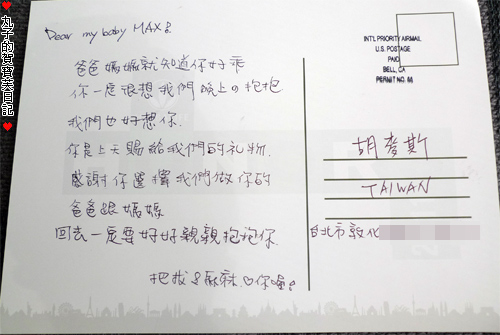 ♥丸子的食食笑日記♥
Dear my baby MAX :
爸爸媽媽就知道你好乖
你一定很想我們晚上の抱抱
我們也好想你.
你是上天賜給我們的礼物.
感謝你選擇我們做你的
爸爸跟媽媽
回去一定要好好親親抱抱你.
把拔&麻麻.♡你喔!
INT'L PRIORITY AIRMAIL
U.S. POSTAGE
PAID
BELL, CA
PERMIT NO. 66
胡麥斯
TAIWAN
台北市敦化